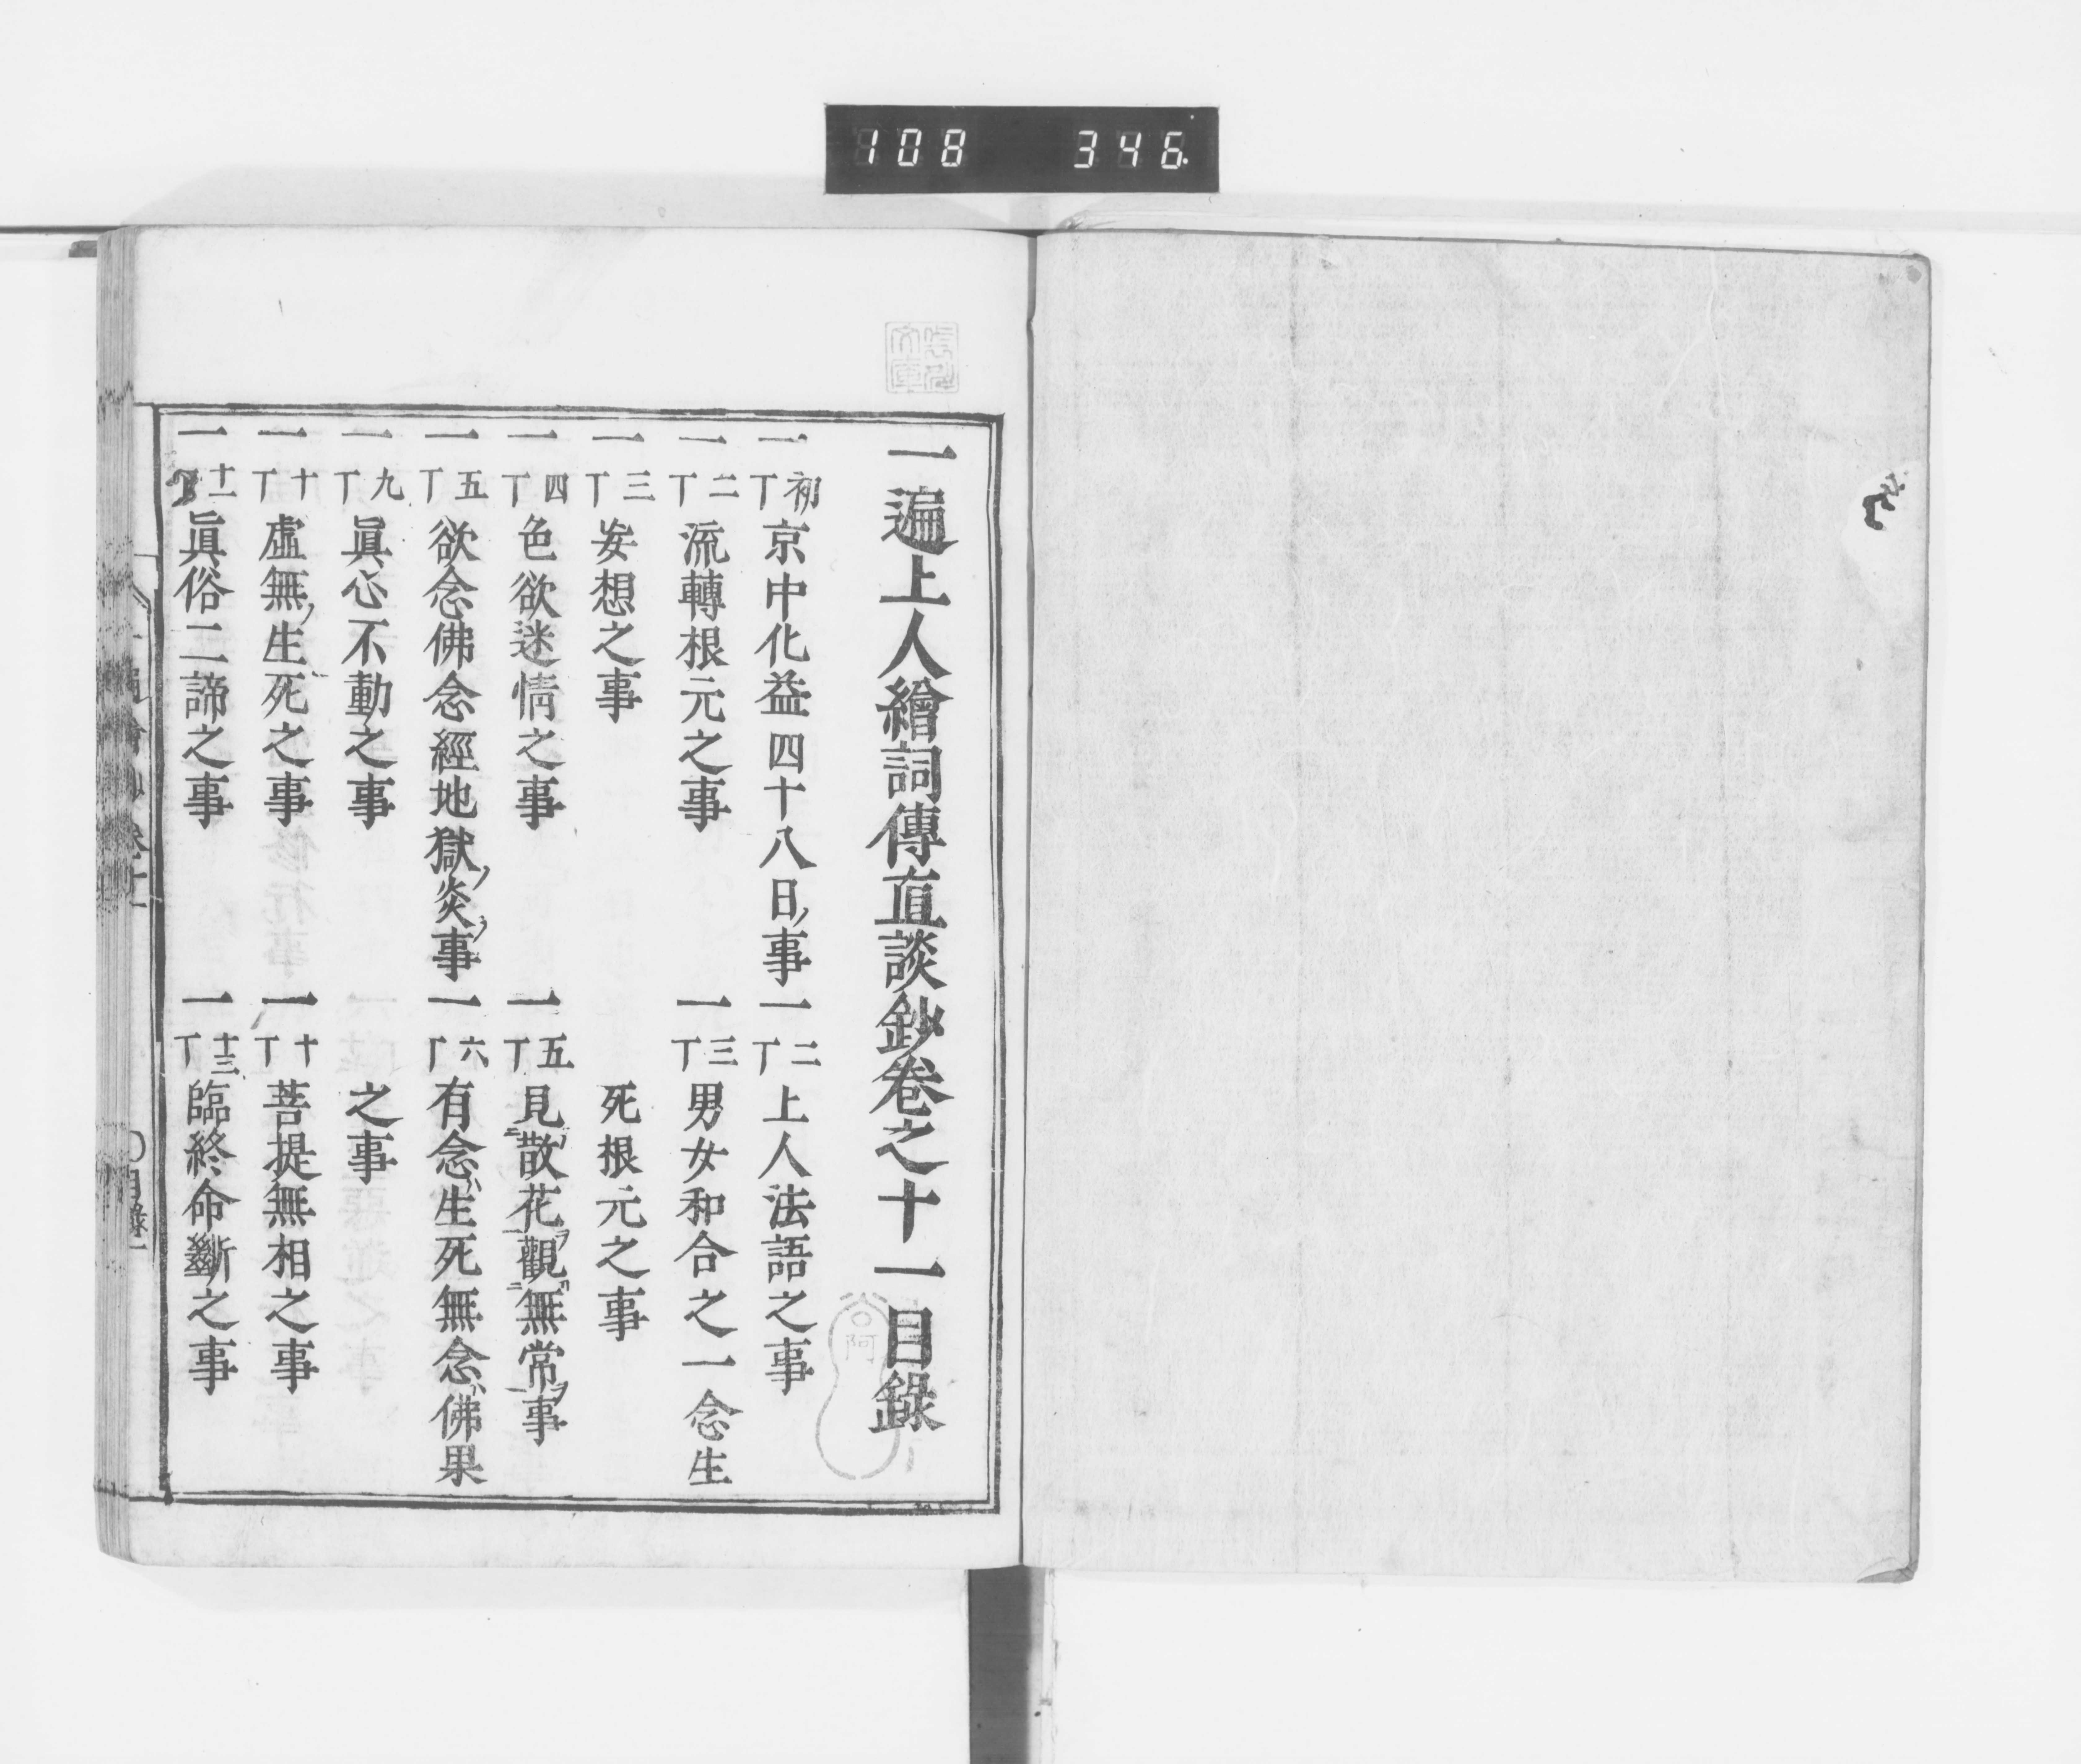 108 346
一遍上人繪詞傳直談鈔卷之十一目錄
一 初丁 京中化益四十八日ノ事 一 二丁 上人法語之事
一 二丁 流轉根元之事 一 三丁 男女和合之一念生
一 三丁 妄想之事 死根元之事
一 四丁 色欲迷情之事 一 五丁 見散花觀無常事
一 五丁 欲念佛念經地獄ノ炎ノ事 一 六丁 有念生死無念佛果
一 九丁 眞心不動之事 之事
一 十丁 虛無ノ生死之事 一 十丁 菩提無相之事
一 十一丁 眞俗二諦之事 一 十三丁 臨終命斷之事